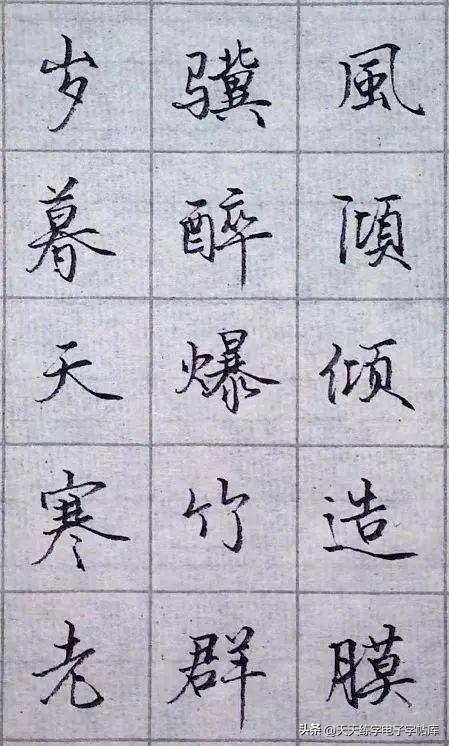 岁暮天寒老
骥醉爆竹群
風倾造膜
头条 @天天练字电子字帖库